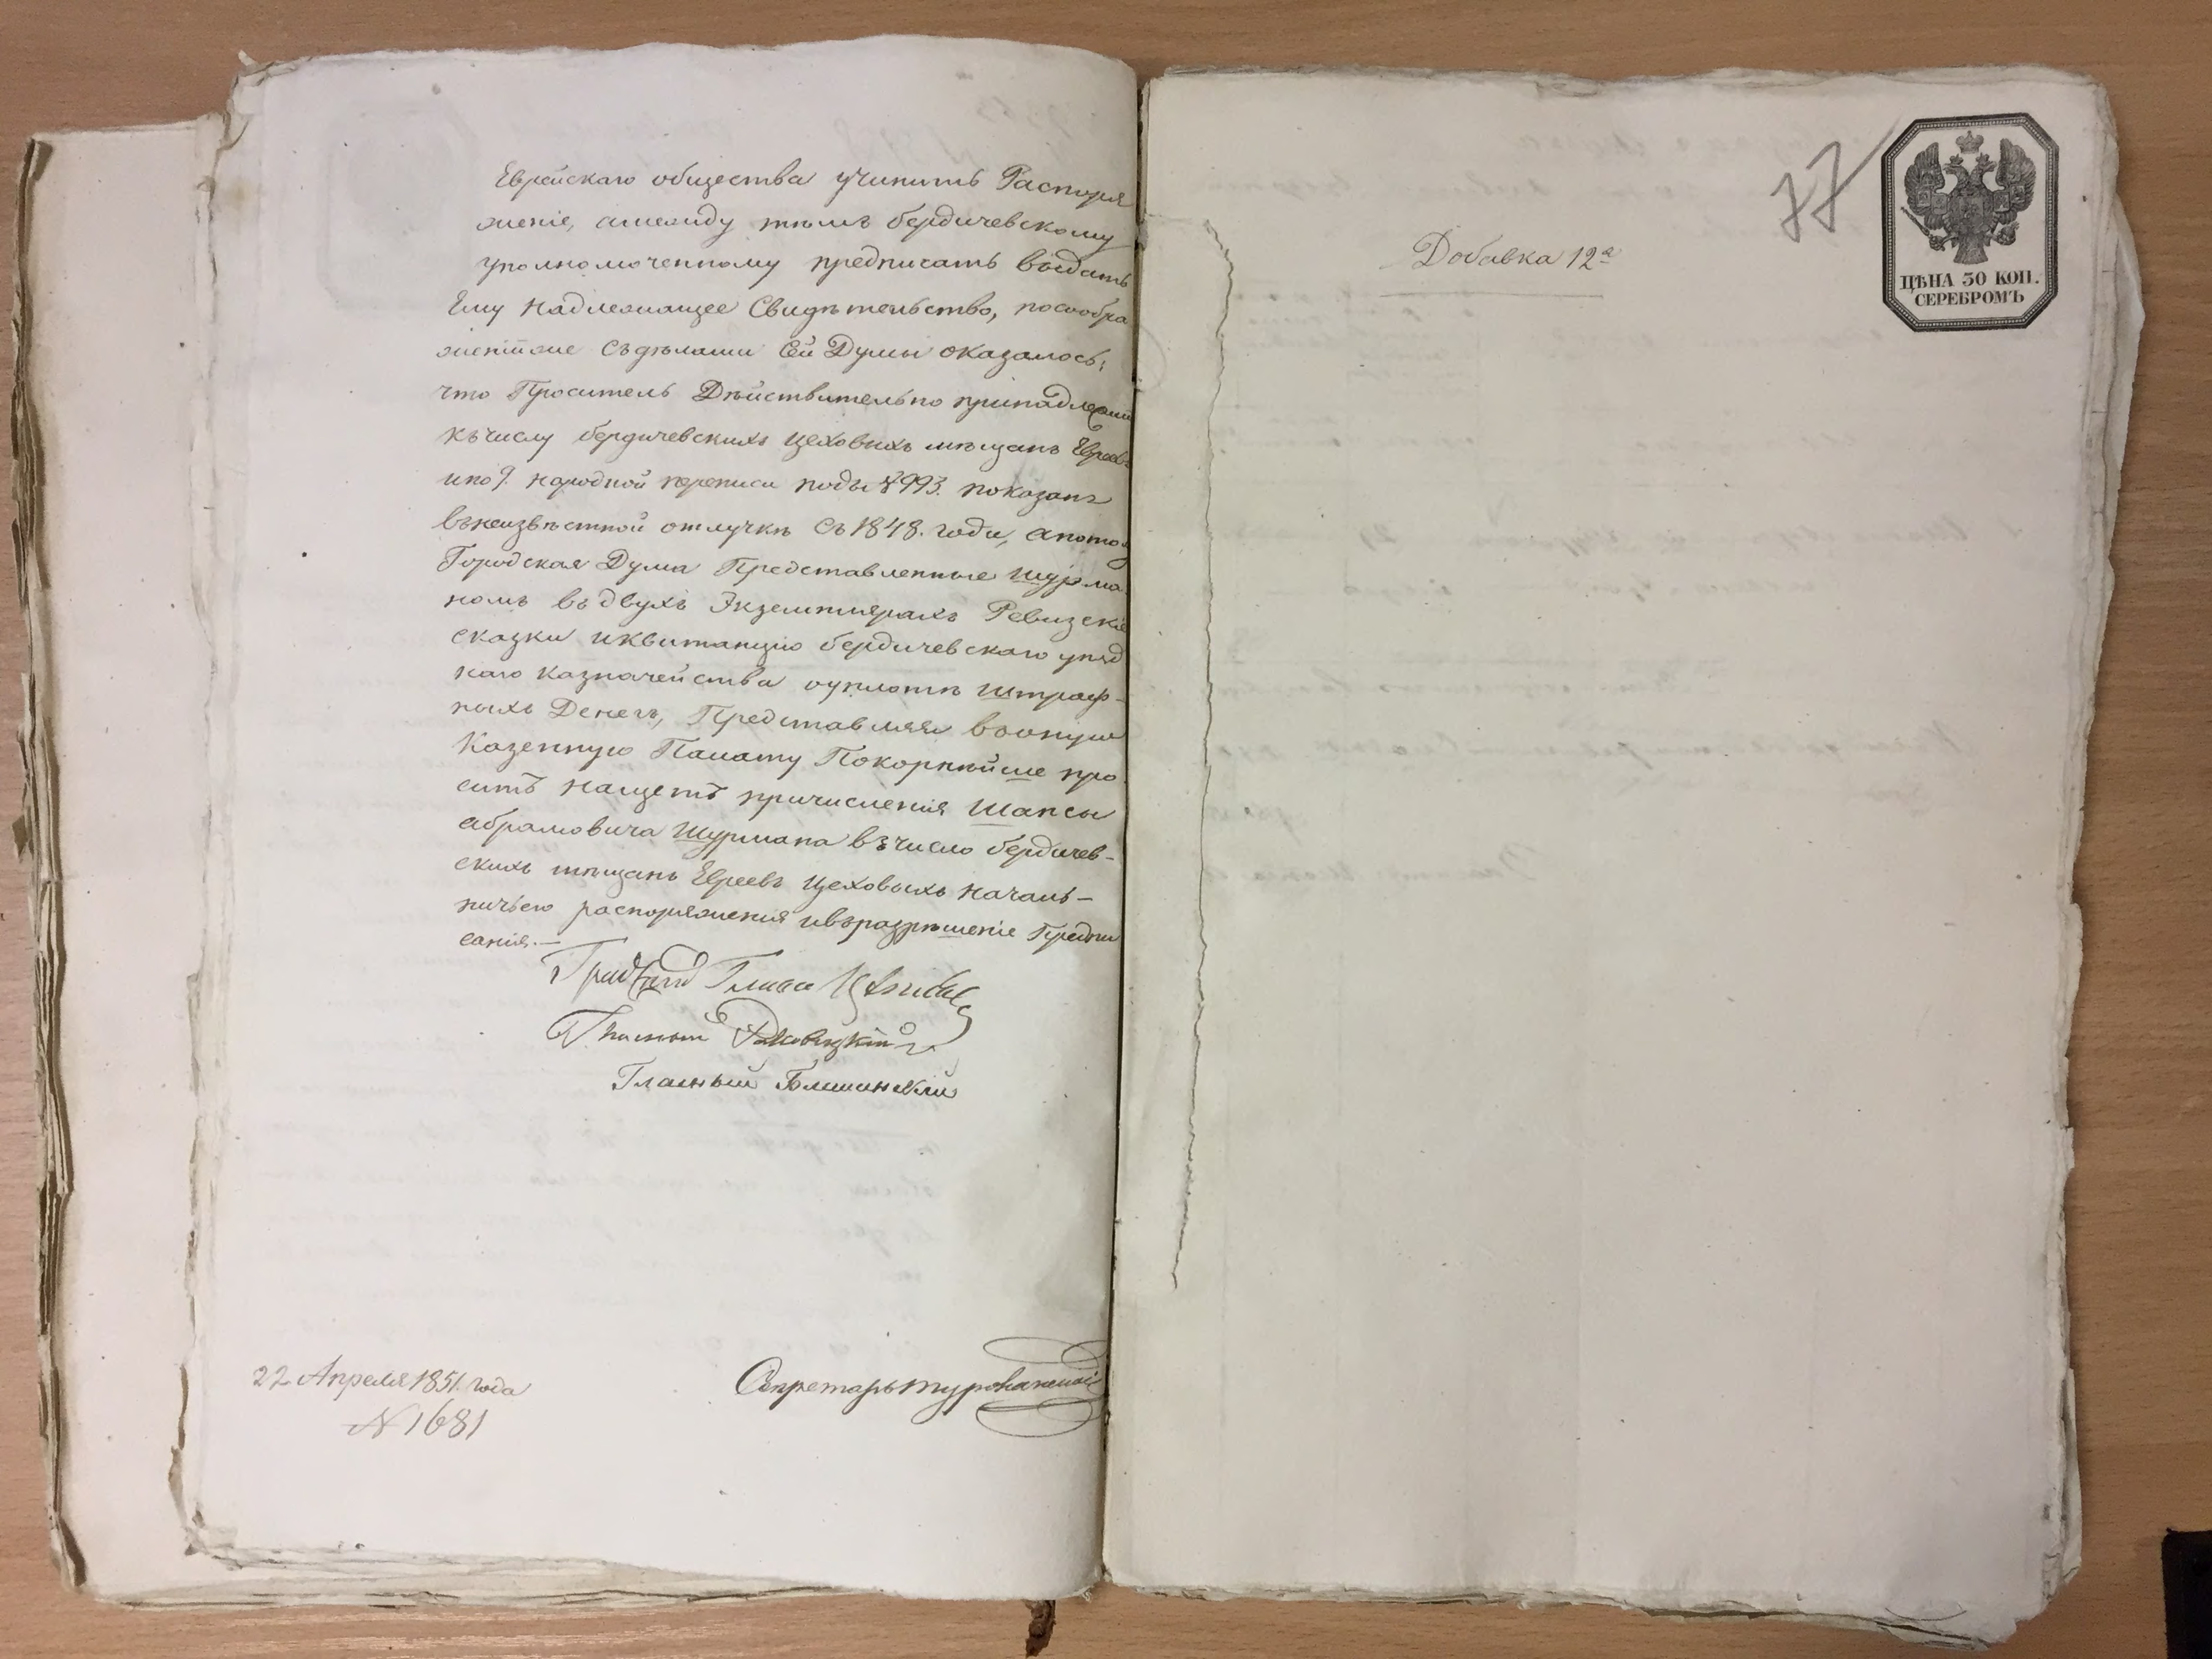 Еврейскаго общества учинить Распоря
женіе, амежду тѣмъ бердичевскому
уполномоченному предписать выдать
Ему надлежащее Свидѣтельство, посообра
женіиже съдѣлами Сей Думы оказалось,
что Проситель Дѣйствительно принадлежит
къчислу бердичевскихъ цеховыхъ мѣщанъ Евреевъ
ипо 9. народной переписи подъ № 993. показанъ
вънеизвѣстной отлучкѣ съ 1848. года, апотому
Городская Дума Представленные Шурма
номъ въдвухъ Экземплярахъ Ревизскіе
сказки иквитанцію бердичевскаго уѣзд
наго казначейства оуплатѣ штраф-
ныхъ Денегъ, Представляя воную
Казенную Палату Покорнѣйше про
ситъ нащетъ причисленія Шапсы
абрамовича Шурмана въчисло бердичев-
скихъ мѣщанъ Евреевъ цеховыхъ началь-
ничьего распоряженія ивъразрѣшеніе Предпи
санія.—
Глава
Гласный
Гласный
22 Апреля 1851. года
№ 1681
Секретарь
77
Добавка 12ᵃ
ЦѢНА 30 КОП.
СЕРЕБРОМЪ